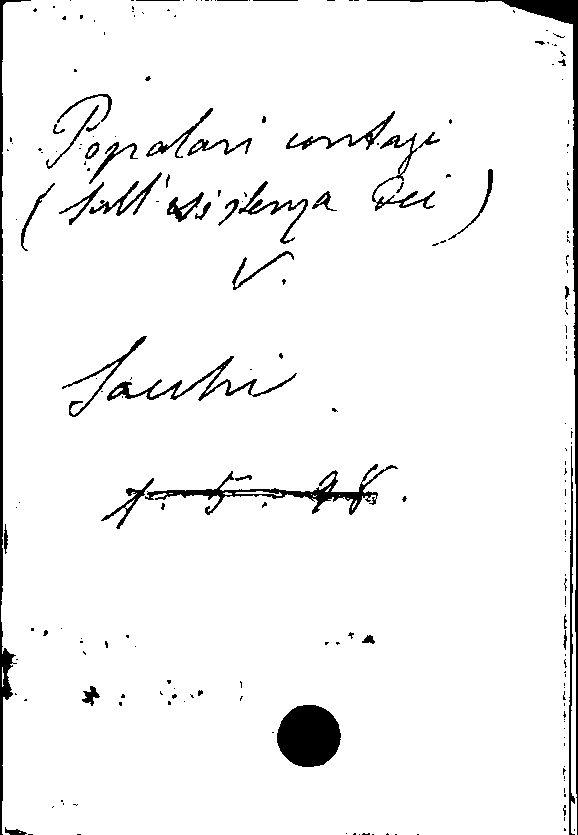 Popolari contagi
(sull'esistenza dei)
V.
Sacchi
1. 5. 98.